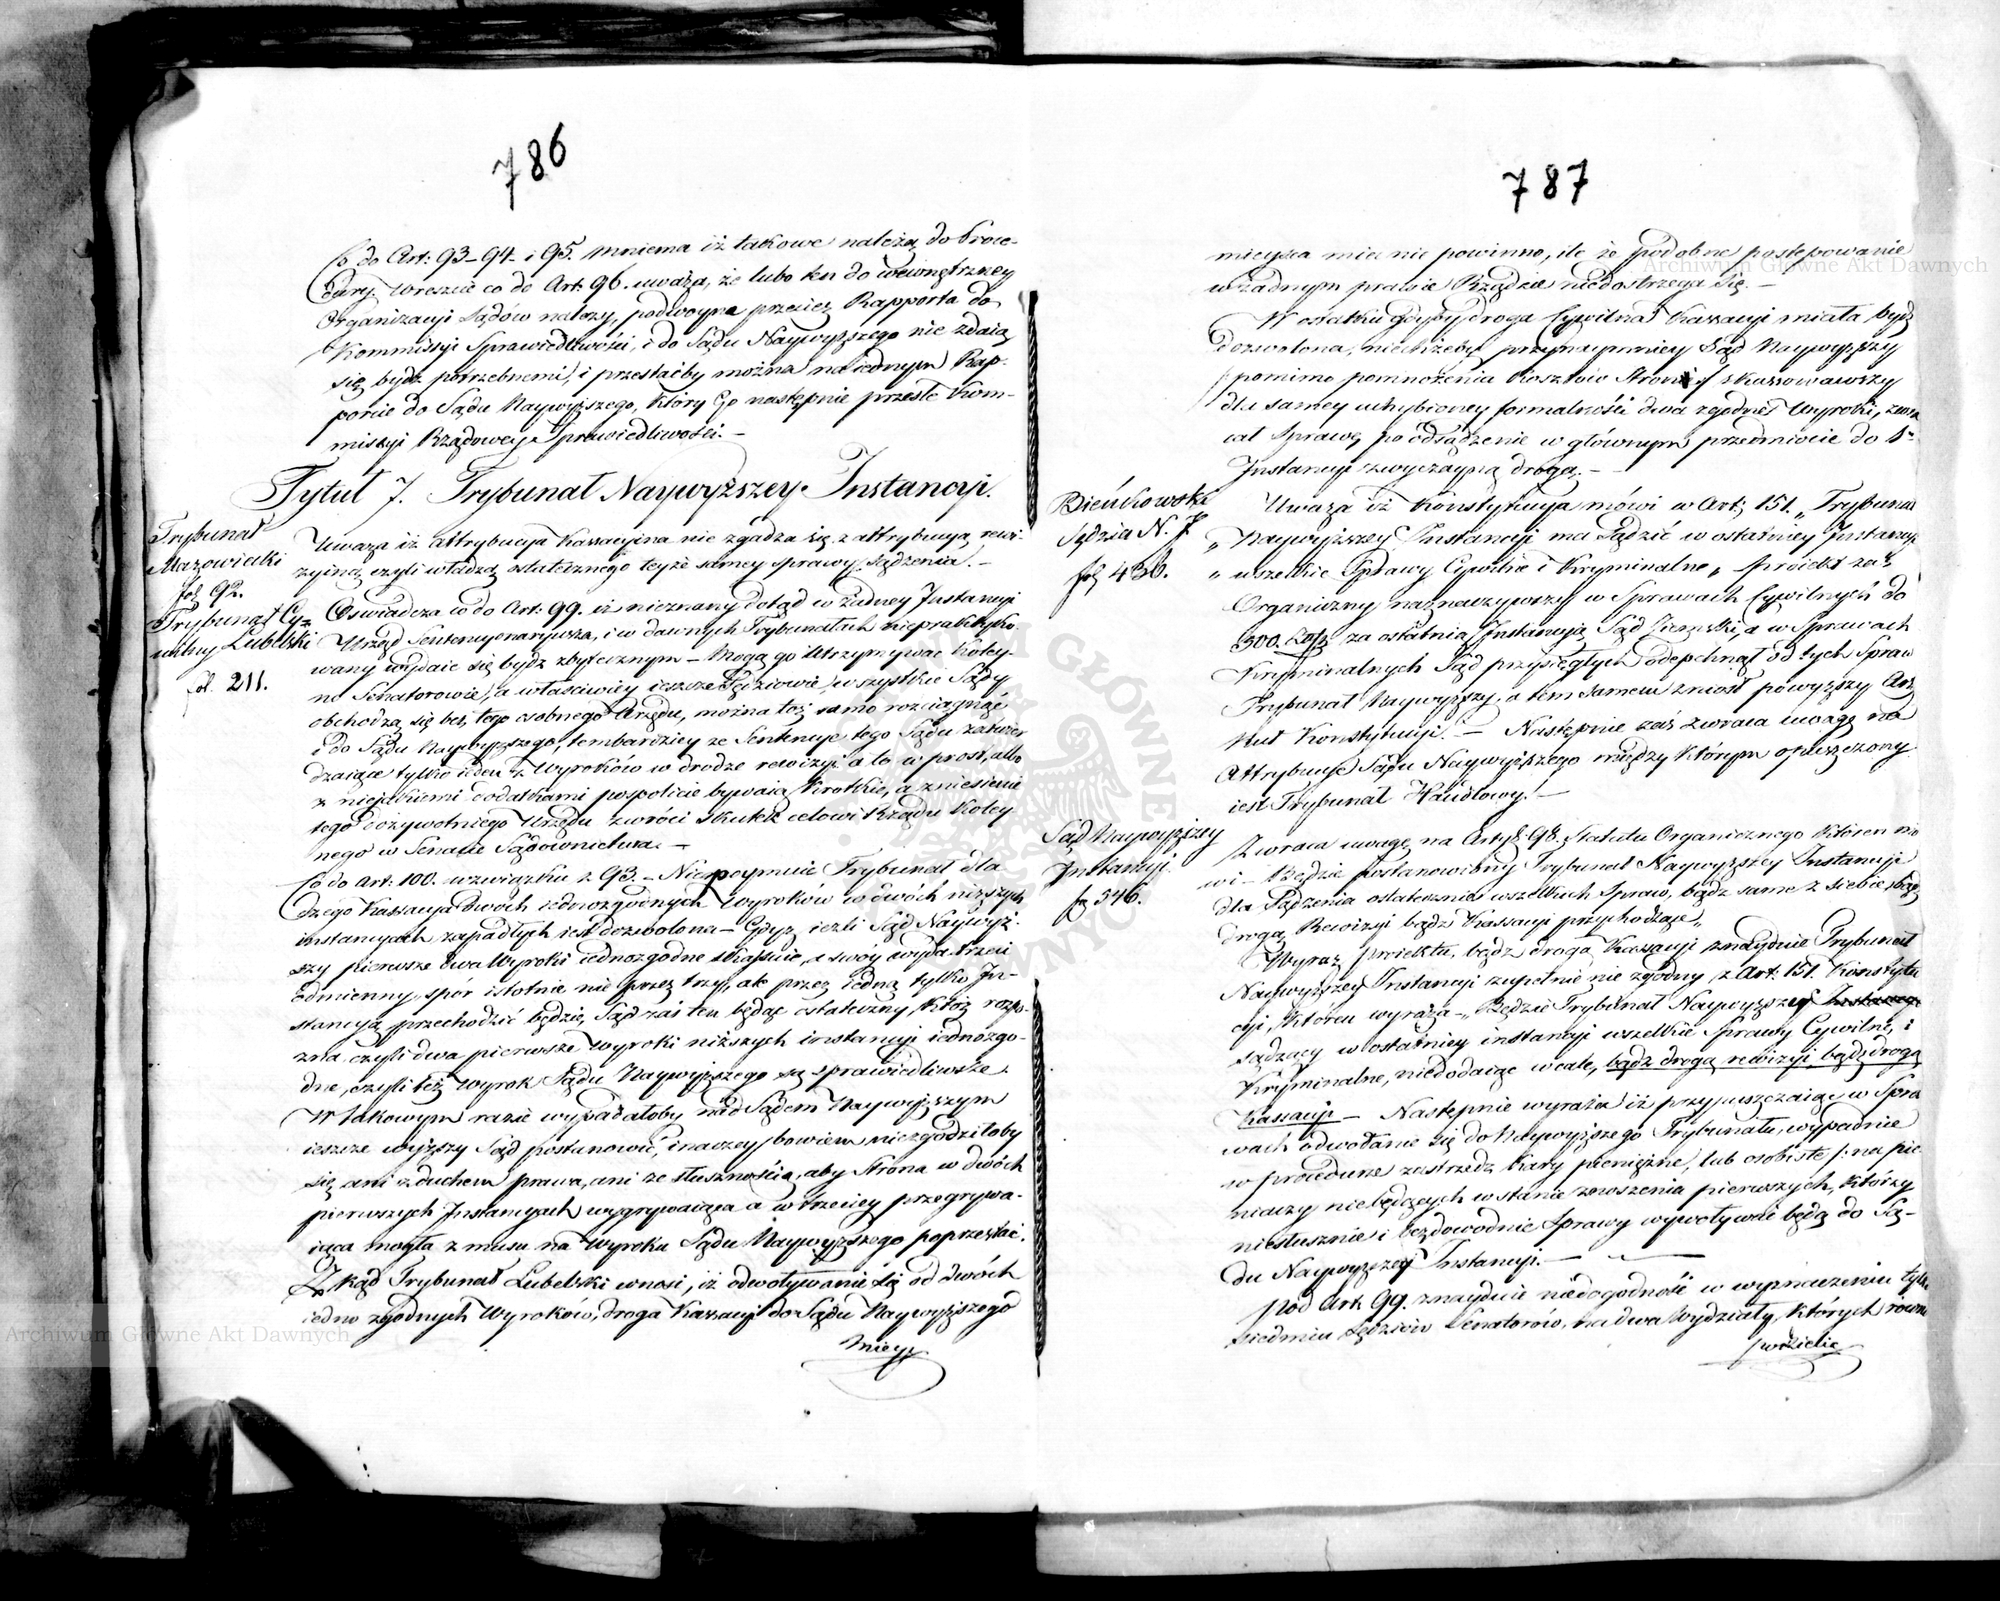 786
Co do Art: 93-94- i 95. mniema iż takowe należą do Proce-
dury. Wreszcie co do Art: 96. uważa, że lubo ten do wewnętrzney
Organizacyi Sądów należy, podwoyne przecież Rapporta do
Kommissyi Sprawiedliwości, i do Sądu Naywyższego nie zdaią
się bydź potrzebnemi, i przestaćby można na iednym Rap-
porcie do Sądu Naywyższego, który Go następnie prześle Kom-
missyi Rządowey Sprawiedliwości. -
Tytuł 7. Trybunał Naywyższey Instancyi.
Trybunał
Mazowiecki
fol. 92.
Uważa iż attrybucya Kassacyina nie zgadza się z attrybucyą rewi-
zyiną czyli władzą ostatecznego teyże samey sprawy sądzenia. -
Trybunał Cy-
wilny Lubelski
fol. 211.
Oświadcza co do Art: 99. iż nieznany dotąd w żadney Instancyi
Urząd Sentencyonaryusza, i w dawnych Trybunałach niepraktyko-
wany wydaie się bydź zbytecznym - Mogą go utrzymywać koley-
no Senatorowie, a właściwiey ieszcze Sędziowie, wszystkie Sądy
obchodzą się bez tego osobnego Urzędu, można toż samo rozciągnąć
i do Sądu Naywyższego, tembardziey że Sentencye tego Sądu zatwier
dzaiące tylko ieden z Wyroków w drodze rewizyi a to w prost, albo
z nieiakiemi dodatkami pospolicie bywaią krótkie, a zniesienie
tego dożywotniego Urzędu zwróci skutek celowi Rządu koley-
nego w Senacie Sądownictwa. -
Co do Art: 100. w związku z 93. - Niepoymuie Trybunał dla
czego Kassacya dwóch iednozgodnych Wyroków w dwóch niższych
instancyach zapadłych iest dozwolona - Gdyż ieżli Sąd Naywyż-
szy pierwsze dwa Wyroki iednozgodne skassuie, a swóy wyda trzeci
odmienny, spór istotnie nie przez trzy, ale przez iedną tylko In-
stancyą przechodzić będzie, Sąd zaś ten będąc ostateczny, któż rozpo-
zna, czyli dwa pierwsze Wyroki niższych instancyi iednozgo-
dne, czyli też Wyrok Sądu Naywyższego są sprawiedliwsze
W takowym razie wypadałoby nad Sądem Naywyższym
ieszcze wyższy Sąd postanowić, inaczey bowiem niezgodziłoby
się ani z duchem prawa, ani ze słusznością, aby Strona w dwóch
pierwszych Instancyach wygrywaiąca a w trzeciey przegrywa-
iąca mogła z musu na Wyroku Sądu Naywyższego poprzestać.
Zkąd Trybunał Lubelski wnosi, iż odwoływanie się od dwóch
iedno zgodnych Wyroków, drogą Kassacyi do Sądu Naywyższego
mieys
787
mieysca mieć nie powinno, ile że podobne postępowanie
w żadnym prawie Rządzie niedostrzega się. -
W ostatku gdyby droga Cywilna Kassacyi miała bydź
dozwolona, niechżeby przynaymniey Sąd Naywyższy
pomimo pomnożenia kosztów Stron skassowawszy
dla samey uchybioney formalności dwa zgodne Wyroki,
cał Sprawę po odsądzenie w głównym przedmiocie do 1éy
Instancyi zwyczayną drogą. -
Bieńkowski
Sędzia N. I.
fol. 436.
Uważa iż Konstytucya mówi w Art: 151. „Trybunał
„Naywyższey Instancyi ma Sądzić w ostatniey Instancyi
„wszelkie Sprawy Cywilne i Kryminalne„ proiekt zaś
Organiczny naznaczywszy w Sprawach Cywilnych do
500. Złp. za ostatnią Instancyą Sąd Ziemski, a w Sprawach
Kryminalnych Sąd przysięgłych odepchnął od tych Spraw
Trybunał Naywyższy, a tem samem zniosł powyższy Arty
kuł Konstytucyi. - Następnie zaś zwraca uwagę na
Attrybucye Sądu Naywyższego między którym opuszczony
iest Trybunał Handlowy. -
Sąd Naywyższey
Instancyi
f. 546.
Zwraca uwagę na Artyk. 98. Statutu Organicznego któren mó
wi - Będzie postanowiony Trybunał Naywyższey Instancyi
dla Sądzenia ostatecznie wszelkich Spraw, bądź same z siebie, bądź
drogą Rewizyi bądź Kassacyi przychodzące„
Wyraz proiektu, bądź drogą Kassacyi znayduie Trybunał
Naywyższey Instancyi zupełnie nie zgodny z Art: 151. Konstytu
cyi, któren wyraża - „Będzie Trybunał Naywyższy Instancyi
sądzący w ostatniey instancyi wszelkie Sprawy Cywilne, i
Kryminalne, niedodaiąc wcale, bądź drogą rewizyi bądź drogą
Kassacyi - Następnie wyraża iż przypuszczaiąc w Spra
wach odwołanie się do Naywyższego Trybunału, wypadnie
w procedurze zastrzedz kary pieniężne, lub osobiste /: na pie
niaczy niebędących w stanie znoszenia pierwszych, którzy
niesłusznie i bezdowodnie Sprawy wywoływać będą do Są-
du Naywyższey Instancyi. -
Pod Art. 99. znayduie niedogodność w wyznaczeniu tylko
siedmiu Sędziów Senatorów, na dwa Wydziały, których rown